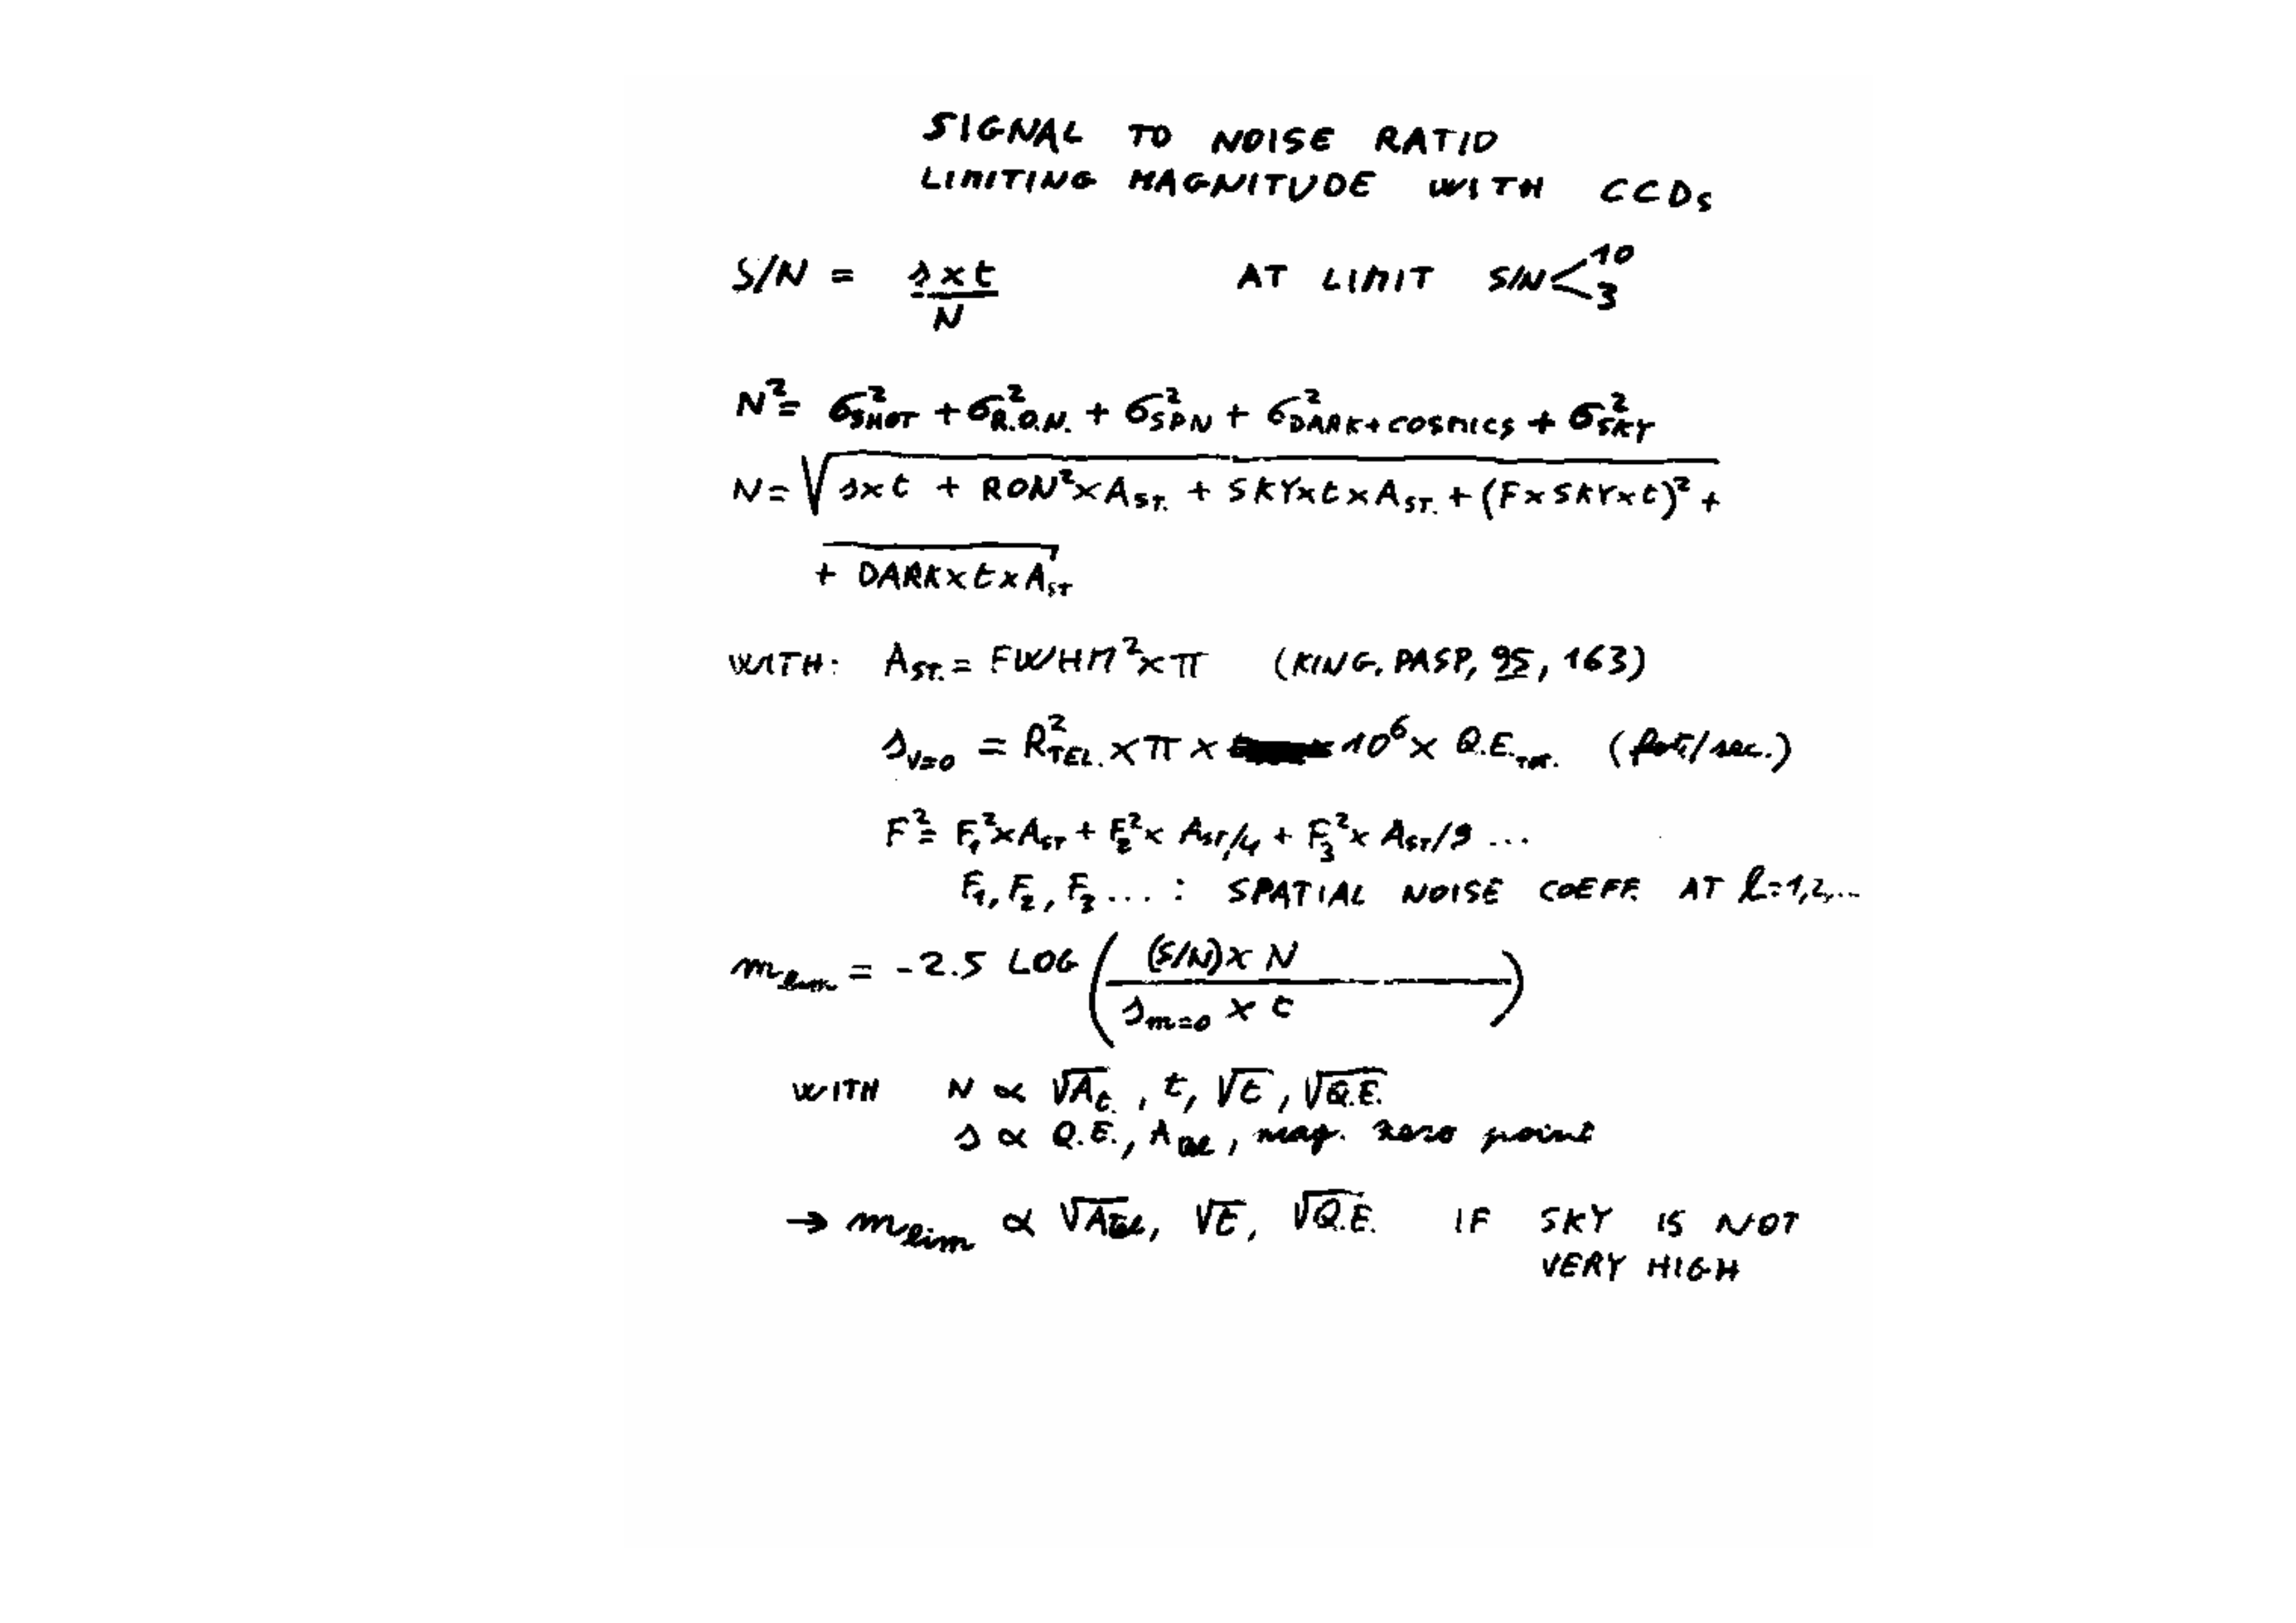 SIGNAL TO NOISE RATIO
LIMITING MAGNITUDE WITH CCDs
S/N = s×t / N    AT LIMIT S/N < 10 3
N² = σ²SHOT + σ²R.O.N. + σ²SPN + σ²DARK+COSMICS + σ²SKY
N = √ s×t + RON²×A ST. + SKY×t×A ST. + (F×SKY×t)² +
+ DARK×t×A ST
WITH: A ST. = FWHM²×π (KING, PASP, 95, 163)
s v=0 = R²TEL. × π × 10⁶ × Q.E. TOT. (fot/sec.)
F² = F₁²×A ST + F₂²× A ST/4 + F₃²× A ST/9 ...
F₁, F₂, F₃ ... : SPATIAL NOISE COEFF. AT ℓ=1,2,...
m lim = -2.5 LOG ( (S/N)× N / s m=0 × t )
WITH N ∝ √A t., t, √t, √Q.E.
s ∝ Q.E., A tel, mag. zero point
→ m lim ∝ √A tel, √t, √Q.E. IF SKY IS NOT
VERY HIGH